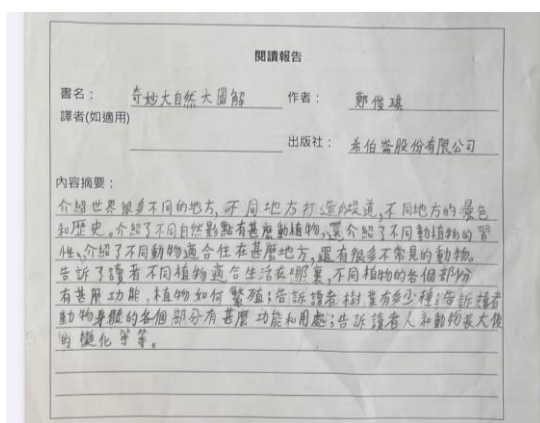 閱讀報告
書名： 奇妙大自然大圖解 作者： 鄭俊琪
譯者(如適用)
出版社： 希伯崙股份有限公司
內容摘要：
介紹世界很多不同的地方，不同地方打造的道，不同地方的景色
和歷史。介紹了不同自然景點有甚麼動植物。還介紹了不同動植物的習
性、介紹了不同動物適合住在甚麼地方，還有很多不常見的動物。
告訴了讀者不同植物適合生活在哪裏，不同植物的各個部份
有甚麼功能，植物如何繁殖；告訴讀者樹葉有多少種；告訴讀者
動物身體的各個部分有甚麼功能和用處；告訴讀者人和動物長大後
的變化等等。